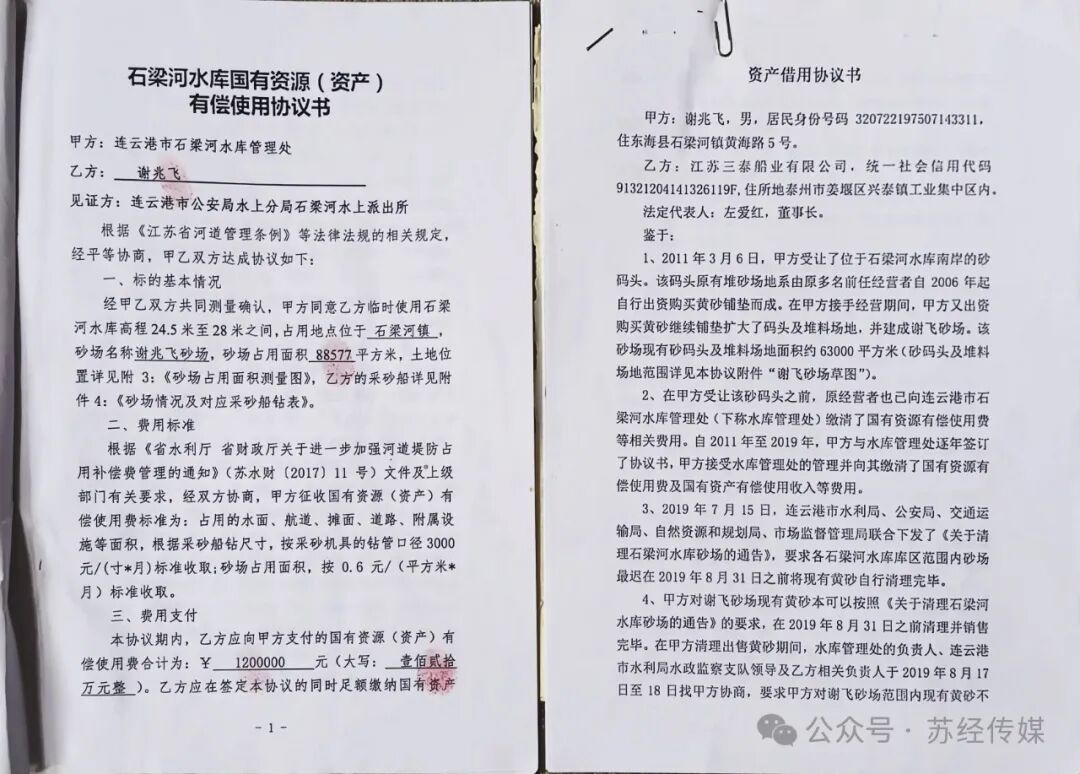 石梁河水库国有资源（资产）
有偿使用协议书
甲方：连云港市石梁河水库管理处
乙方：谢兆飞
见证方：连云港市公安局水上分局石梁河水上派出所
根据《江苏省河道管理条例》等法律法规的相关规定，
经平等协商，甲乙双方达成协议如下：
一、标的基本情况
经甲乙双方共同测量确认，甲方同意乙方临时使用石梁
河水库高程24.5米至28米之间，占用地点位于 石梁河镇，
砂场名称谢兆飞砂场，砂场占用面积 88577平方米，土地位
置详见附 3：《砂场占用面积测量图》，乙方的采砂船详见附
件 4：《砂场情况及对应采砂船钻表》。
二、费用标准
根据《省水利厅 省财政厅关于进一步加强河道堤防占
用补偿费管理的通知》（苏水财〔2017〕11 号）文件及上级
部门有关要求，经双方协商，甲方征收国有资源（资产）有
偿使用费标准为：占用的水面、航道、摊面、道路、附属设
施等面积，根据采砂船钻尺寸，按采砂机具的钻管口径 3000
元/(寸*月)标准收取;砂场占用面积，按 0.6 元/（平方米*
月）标准收取。
三、费用支付
本协议期内，乙方应向甲方支付的国有资源（资产）有
偿使用费合计为：￥ 1200000 元（大写：壹佰贰拾
万元整）。乙方应在签定本协议的同时足额缴纳国有资产
- 1 -
资产借用协议书
甲方：谢兆飞，男，居民身份号码 320722197507143311，
住东海县石梁河镇黄海路 5 号。
乙方：江苏三泰船业有限公司，统一社会信用代码
91321204141326119F,住所地泰州市姜堰区兴泰镇工业集中区内。
法定代表人：左爱红，董事长。
鉴于：
1、2011 年 3 月 6 日，甲方受让了位于石梁河水库南岸的砂
码头。该码头原有堆砂场地系由原多名前任经营者自 2006 年起
自行出资购买黄砂铺垫而成。在甲方接手经营期间，甲方又出资
购买黄砂继续铺垫扩大了码头及堆料场地，并建成谢飞砂场。该
砂场现有砂码头及堆料场地面积约 63000 平方米（砂码头及堆料
场地范围详见本协议附件“谢飞砂场草图”）。
2、在甲方受让该砂码头之前，原经营者也已向连云港市石
梁河水库管理处（下称水库管理处）缴清了国有资源有偿使用费
等相关费用。自 2011 年至 2019 年，甲方与水库管理处逐年签订
了协议书，甲方接受水库管理处的管理并向其缴清了国有资源有
偿使用费及国有资产有偿使用收入等费用。
3、2019 年 7 月 15 日，连云港市水利局、公安局、交通运
输局、自然资源和规划局、市场监督管理局联合下发了《关于清
理石梁河水库砂场的通告》，要求各石梁河水库库区范围内砂场
最迟在 2019 年 8 月 31 日之前将现有黄砂自行清理完毕。
4、甲方对谢飞砂场现有黄砂本可以按照《关于清理石梁河
水库砂场的通告》的要求，在 2019 年 8 月 31 日之前清理并销售
完毕。在甲方清理出售黄砂期间，水库管理处的负责人、连云港
市水利局水政监察支队领导及乙方相关负责人于 2019 年 8 月 17
日至 18 日找甲方协商，要求甲方对谢飞砂场范围内现有黄砂不
公众号 · 苏经传媒